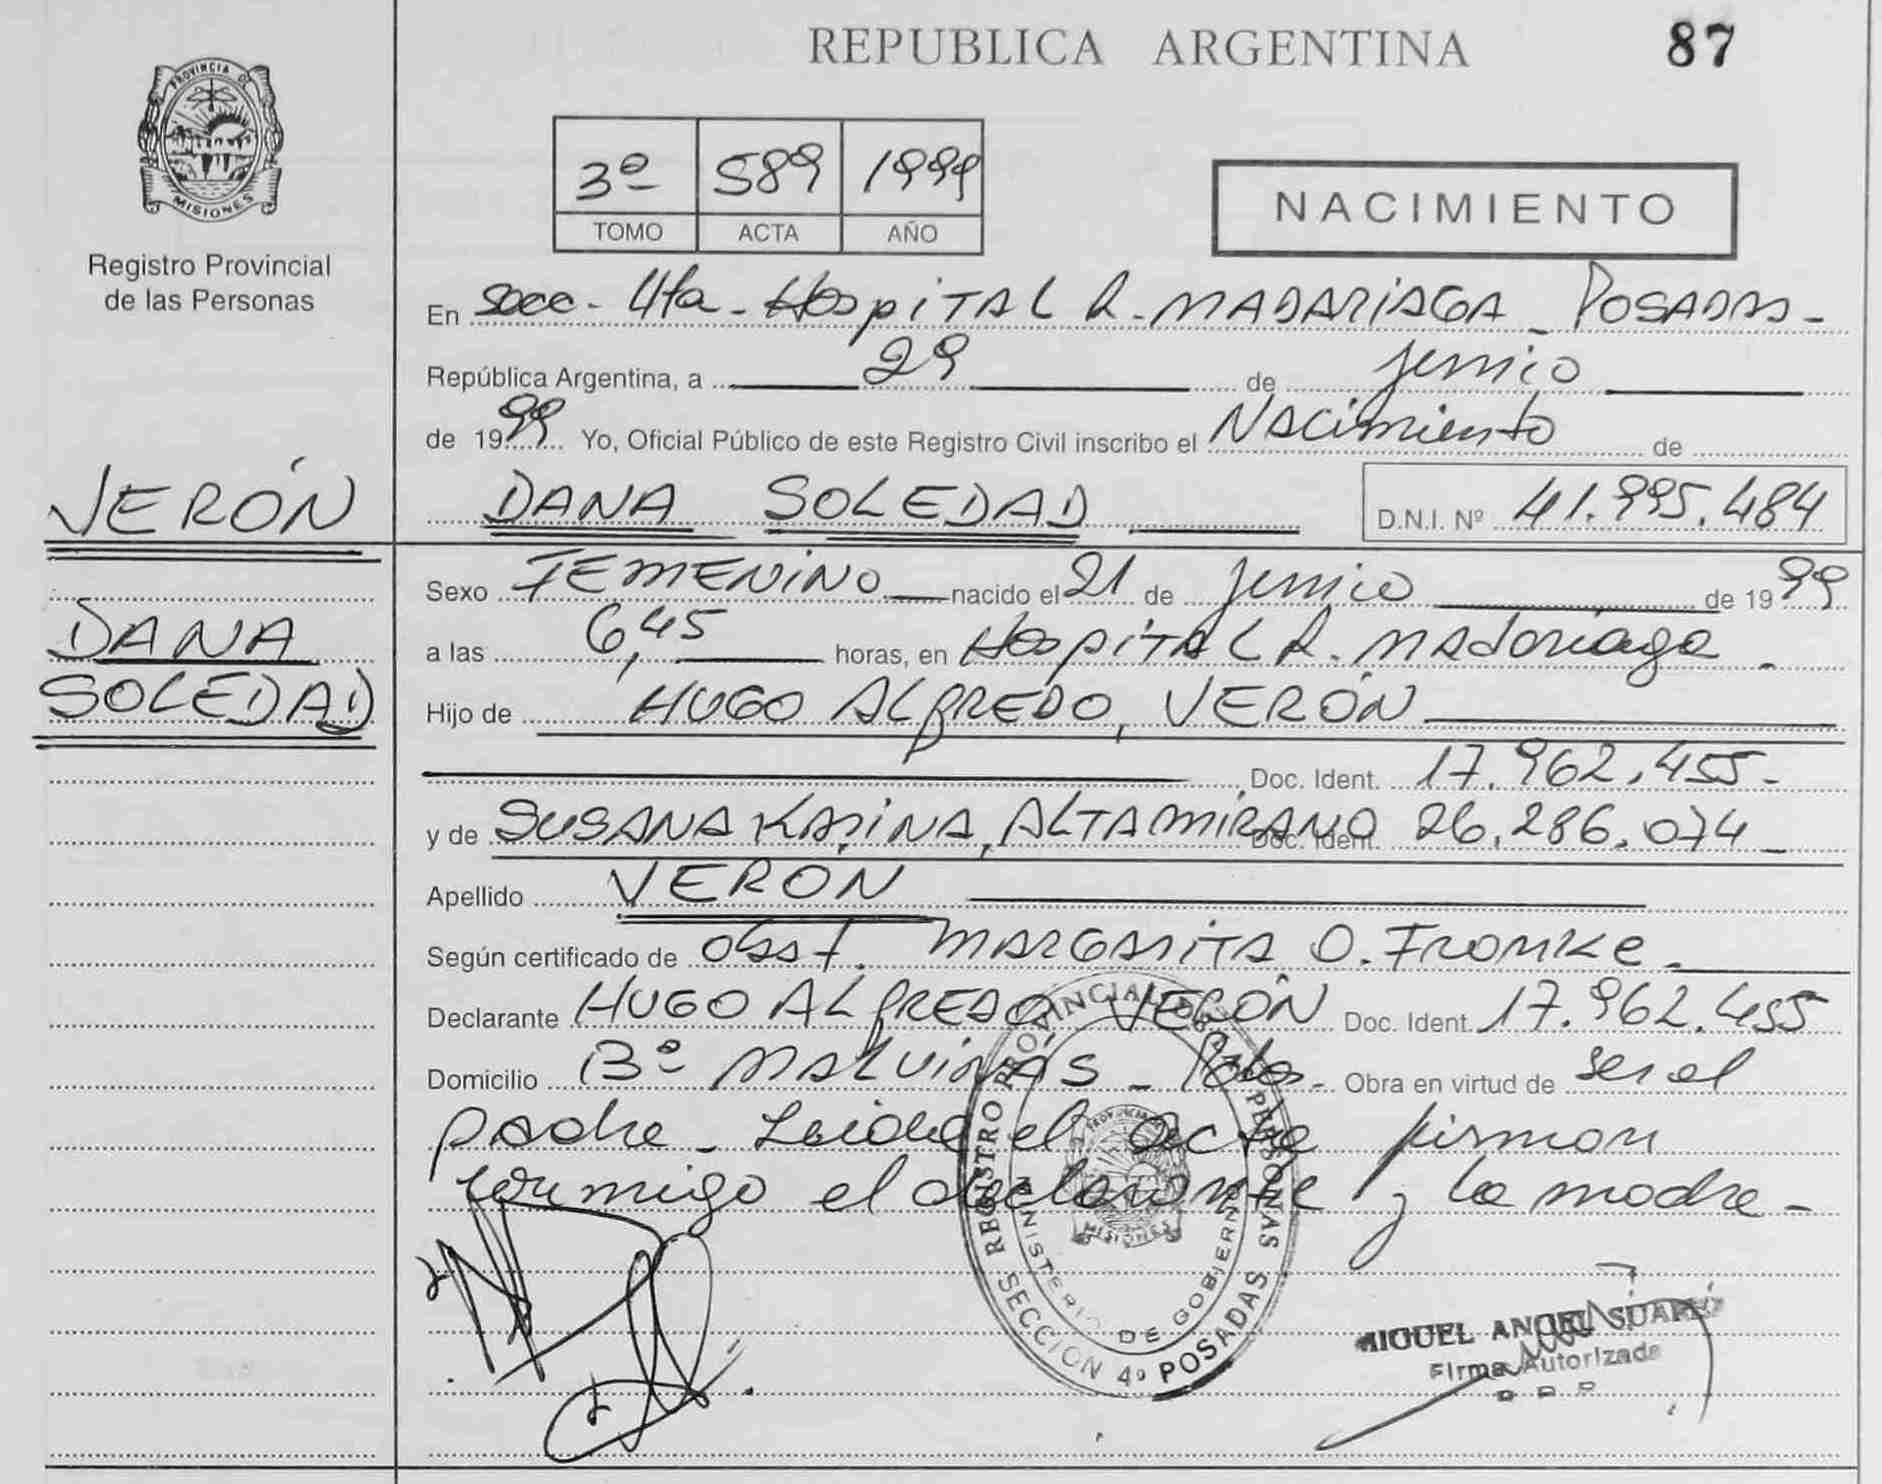 REPUBLICA ARGENTINA
87
PROVINCIA DE
MISIONES
Registro Provincial
de las Personas
3º 589 1999
TOMO ACTA AÑO
NACIMIENTO
En Secc. 4ta. Hospital R. MADARIAGA - POSADAS -
República Argentina, a 29 de junio
de 1999 Yo, Oficial Público de este Registro Civil inscribo el Nacimiento de
VERÓN
DANA SOLEDAD D.N.I. Nº 41.995.484
DANA
SOLEDAD
Sexo FEMENINO nacido el 21 de junio de 1999
a las 6,45 horas, en Hospital R. Madariaga -
Hijo de HUGO ALFREDO, VERÓN
Doc. Ident. 17.962.455-
y de SUSANA KARINA, ALTAMIRANO Doc. Ident. 26.286.074-
Apellido VERON
Según certificado de Obst. MARGARITA O. FROMKE -
Declarante HUGO ALFREDO VERÓN Doc. Ident. 17.962.455
Domicilio Bº MALVINAS - Pdas - Obra en virtud de ser el
padre - Leida el acta firman
conmigo el declarante y la madre -
REGISTRO PROVINCIAL DE LAS PERSONAS
SECCION 4º POSADAS
MINISTERIO DE GOBIERNO
PROVINCIA
MISIONES
MIGUEL ANGEL SUAREZ
Firma Autorizada